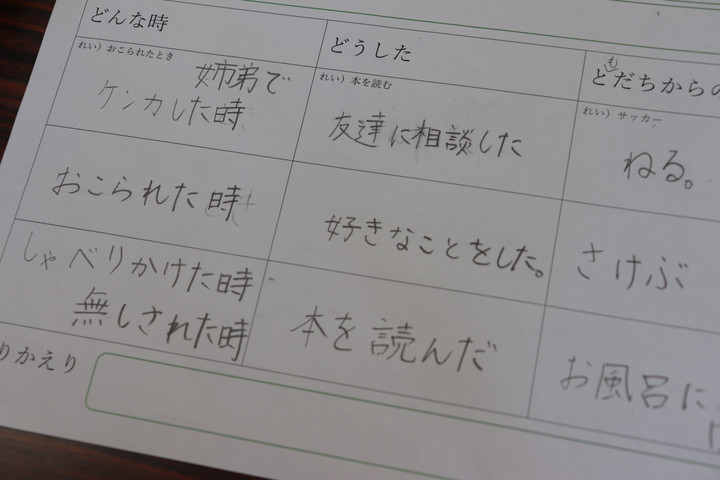 どんな時
どうした
ともだちからの
れい）おこられたとき
姉弟で
ケンカした時
れい）本を読む
友達に相談した
れい）サッカー
ねる。
おこられた時
好きなことをした。
さけぶ
しゃべりかけた時
無しされた時
本を読んだ
お風呂に
りかえり